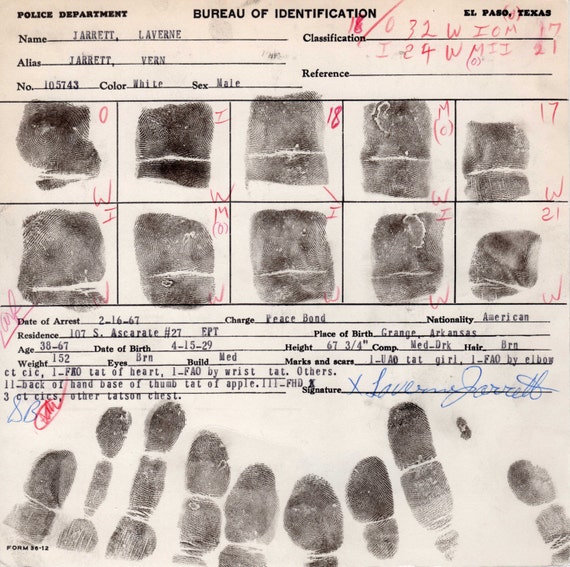 POLICE DEPARTMENT BUREAU OF IDENTIFICATION EL PASO, TEXAS
Name JARRETT, LAVERNE Classification 18 O 32 W IOM 17
Alias JARRETT, VERN I 24 W MII 21
(O)
Reference
No. 105743 Color White Sex Male
O I 18 M (O) 17
W W W W
I M (O) I I 21
W W W W
Date of Arrest 2-16-67 Charge Peace Bond Nationality American
Residence 107 S. Ascarate #27 EPT Place of Birth Grange, Arkansas
Age 38-67 Date of Birth 4-15-29 Height 67 3/4" Comp. Med-Drk Hair Brn
Weight 152 Eyes Brn Build Med Marks and scars 1-UAO tat girl, 1-FAO by elbow
ct cic, 1-FRO tat of heart, 1-FAO by wrist tat. Others.
11-back of hand base of thumb tat of apple.III-FHD X
3 ct cics, other tatson chest. Signature X Laverne Jarrett
SB
FORM 36-12